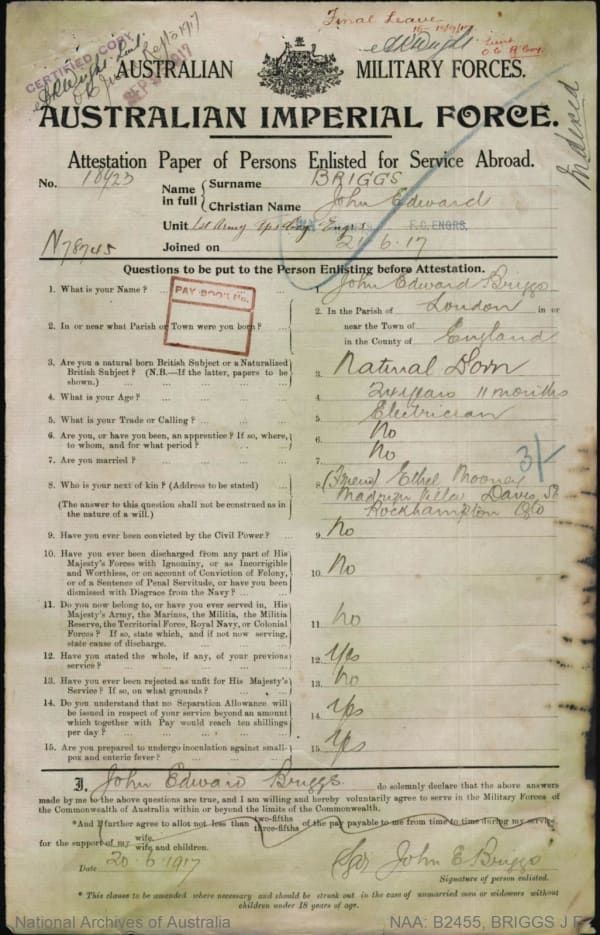 Final Leave
CERTIFIED COPY
SEP 1917
AUSTRALIAN MILITARY FORCES.
AUSTRALIAN IMPERIAL FORCE.
Indexed
Attestation Paper of Persons Enlisted for Service Abroad.
No. 18923
Name in full { Surname BRIGGS
Christian Name John Edward
Unit 1st Army Engrs. F.C. ENGRS.
N78745
Joined on 21.6.17
Questions to be put to the Person Enlisting before Attestation.
1. What is your Name? ... 1. John Edward Briggs
PAY-BOOK No.
2. In or near what Parish or Town were you born? ... 2. In the Parish of London in or
near the Town of
in the County of England
3. Are you a natural born British Subject or a Naturalized
British Subject? (N.B.—If the latter, papers to be
shown.) ... 3. Natural Born
4. What is your Age? ... 4. 24 years 11 months
5. What is your Trade or Calling? ... 5. Electrician
6. Are you, or have you been, an apprentice? If so, where,
to whom, and for what period? ... 6. No
7. Are you married? ... 7. No
3/-
8. Who is your next of kin? (Address to be stated) 8. (Friend) Ethel Mooney
Villa Davis St
(The answer to this question shall not be construed as in
the nature of a will.) Rockhampton Qld
9. Have you ever been convicted by the Civil Power? ... 9. No
10. Have you ever been discharged from any part of His
Majesty's Forces with Ignominy, or as Incorrigible
and Worthless, or on account of Conviction of Felony,
or of a Sentence of Penal Servitude, or have you been
dismissed with Disgrace from the Navy? ... 10. No
11. Do you now belong to, or have you ever served in, His
Majesty's Army, the Marines, the Militia, the Militia
Reserve, the Territorial Force, Royal Navy, or Colonial
Forces? If so, state which, and if not now serving,
state cause of discharge. ... 11. No
12. Have you stated the whole, if any, of your previous
service? ... 12. Yes
13. Have you ever been rejected as unfit for His Majesty's
Service? If so, on what grounds? ... 13. No
14. Do you understand that no Separation Allowance will
be issued in respect of your service beyond an amount
which together with Pay would reach ten shillings
per day? ... 14. Yes
15. Are you prepared to undergo inoculation against small-
pox and enteric fever? ... 15. Yes
I, John Edward Briggs do solemnly declare that the above answers
made by me to the above questions are true, and I am willing and hereby voluntarily agree to serve in the Military Forces of
the Commonwealth of Australia within or beyond the limits of the Commonwealth.
*And I further agree to allot not less than two-fifths three-fifths of the pay payable to me from time to time during my service
for the support of my wife. wife and children.
Date 20.6.1917 (Sgd) John E Briggs
Signature of person enlisted.
* This clause to be amended where necessary and should be struck out in the case of unmarried men or widowers without
children under 18 years of age.
National Archives of Australia NAA: B2455, BRIGGS J E